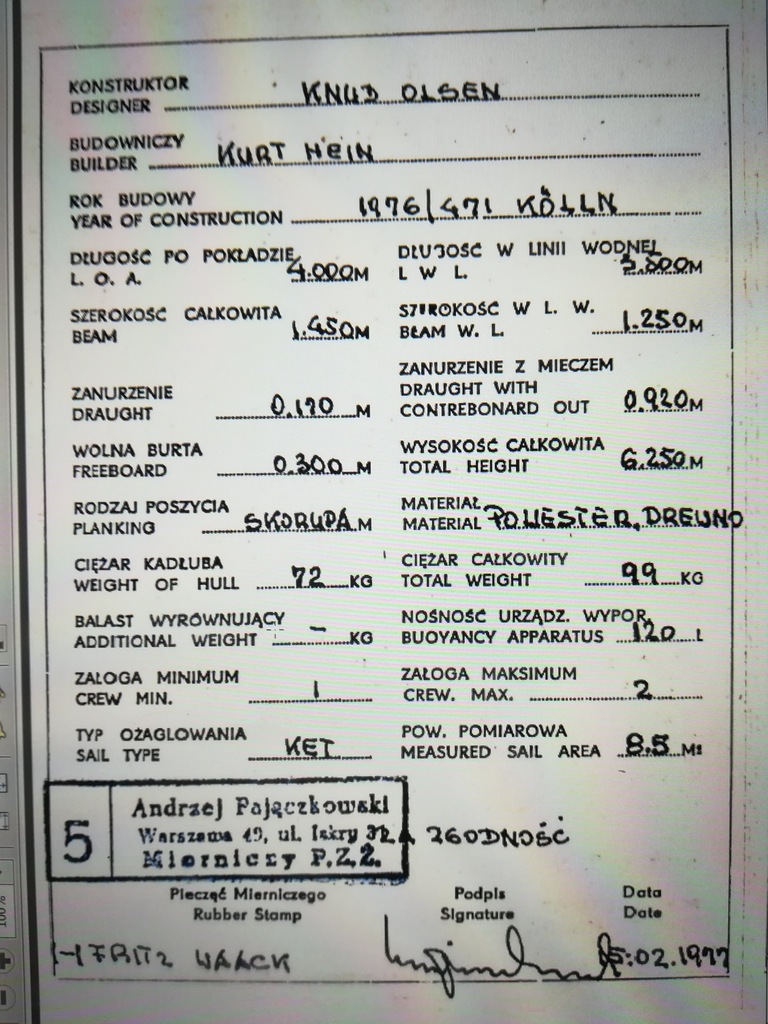 KONSTRUKTOR
DESIGNER KNUD OLSEN
BUDOWNICZY
BUILDER KURT HEIN
ROK BUDOWY
YEAR OF CONSTRUCTION 1976/471 KÖLLN
DŁUGOŚĆ PO POKŁADZIE
L. O. A. 4.000 M
DŁUGOŚĆ W LINII WODNEJ
L W L. 3.800 M
SZEROKOŚĆ CAŁKOWITA
BEAM 1.450 M
SZEROKOŚĆ W L. W.
BEAM W. L. 1.250 M
ZANURZENIE
DRAUGHT M
ZANURZENIE Z MIECZEM
DRAUGHT WITH
CONTREBONARD OUT 0.920 M
WOLNA BURTA
FREEBOARD 0.300 M
WYSOKOŚĆ CAŁKOWITA
TOTAL HEIGHT 6.250 M
RODZAJ POSZYCIA
PLANKING SKORUPA M
MATERIAŁ
MATERIAL POLIESTER, DREWNO
CIĘŻAR KADŁUBA
WEIGHT OF HULL 72 KG
CIĘŻAR CAŁKOWITY
TOTAL WEIGHT 99 KG
BALAST WYRÓWNUJĄCY
ADDITIONAL WEIGHT – KG
NOŚNOŚĆ URZĄDZ. WYPOR.
BUOYANCY APPARATUS 120 L
ZAŁOGA MINIMUM
CREW MIN. 1
ZAŁOGA MAKSIMUM
CREW. MAX. 2
TYP OŻAGLOWANIA
SAIL TYPE KET
POW. POMIAROWA
MEASURED SAIL AREA 8.5 M²
5
Andrzej Pajączkowski
Warszawa 49, ul. Iskry
Mierniczy P.Z.Ż.
ZA ZGODNOŚĆ
Pieczęć Mierniczego
Rubber Stamp
Podpis
Signature
Data
Date
H FRITZ WAACK
15.02.1977